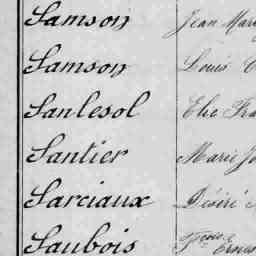 Samson Jean Mar
Samson Louis
Sanlesol Elie Fra
Santier Marie Jo
Sarciaux Désiré
Saubois Fçois Ernes